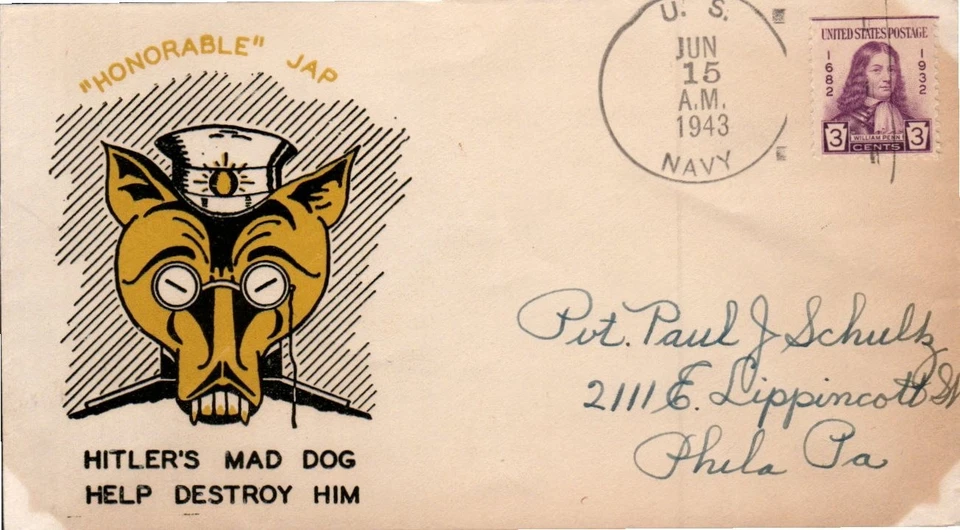 "HONORABLE" JAP
HITLER'S MAD DOG
HELP DESTROY HIM
U. S.
JUN
15
A.M.
1943
NAVY
UNITED STATES POSTAGE
1682
1932
WILLIAM PENN
3 CENTS 3
Pvt. Paul J Schultz
2111 E. Lippincott St
Phila Pa